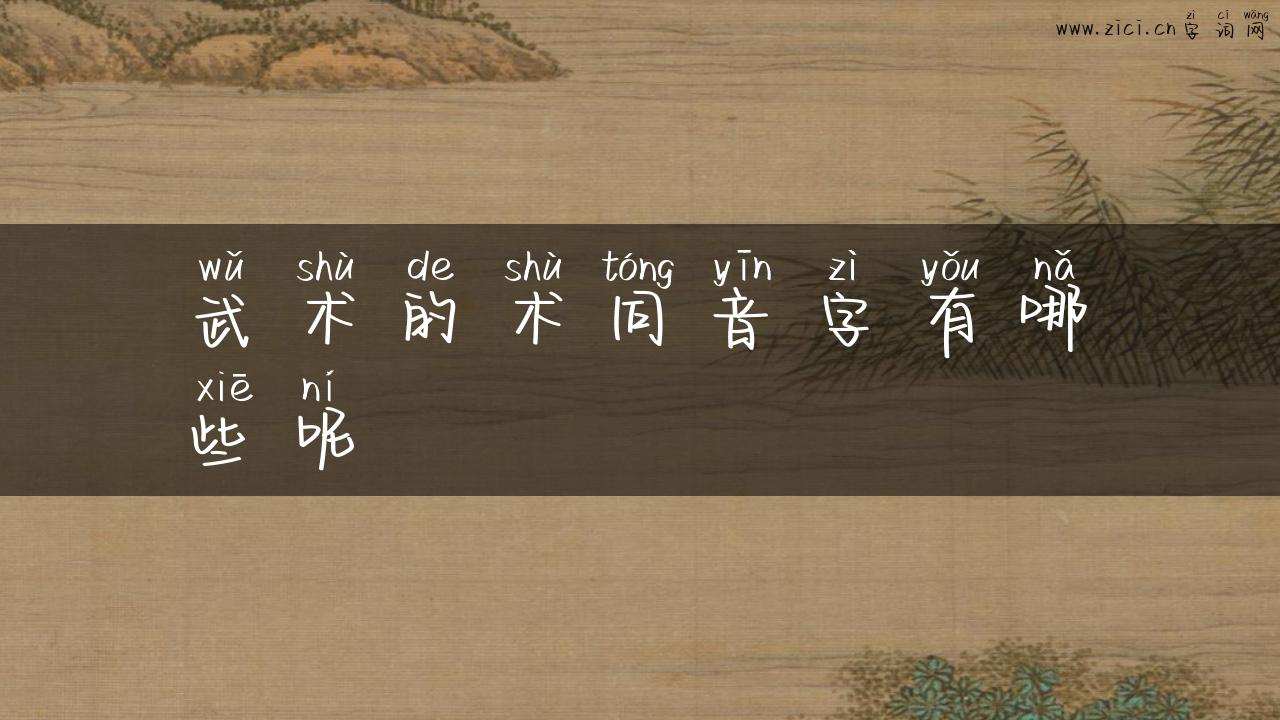 zì cí wǎng
www.zici.cn 字 词 网
wǔ shù de shù tóng yīn zì yǒu nǎ
武 术 的 术 同 音 字 有 哪
xiē ní
些 呢